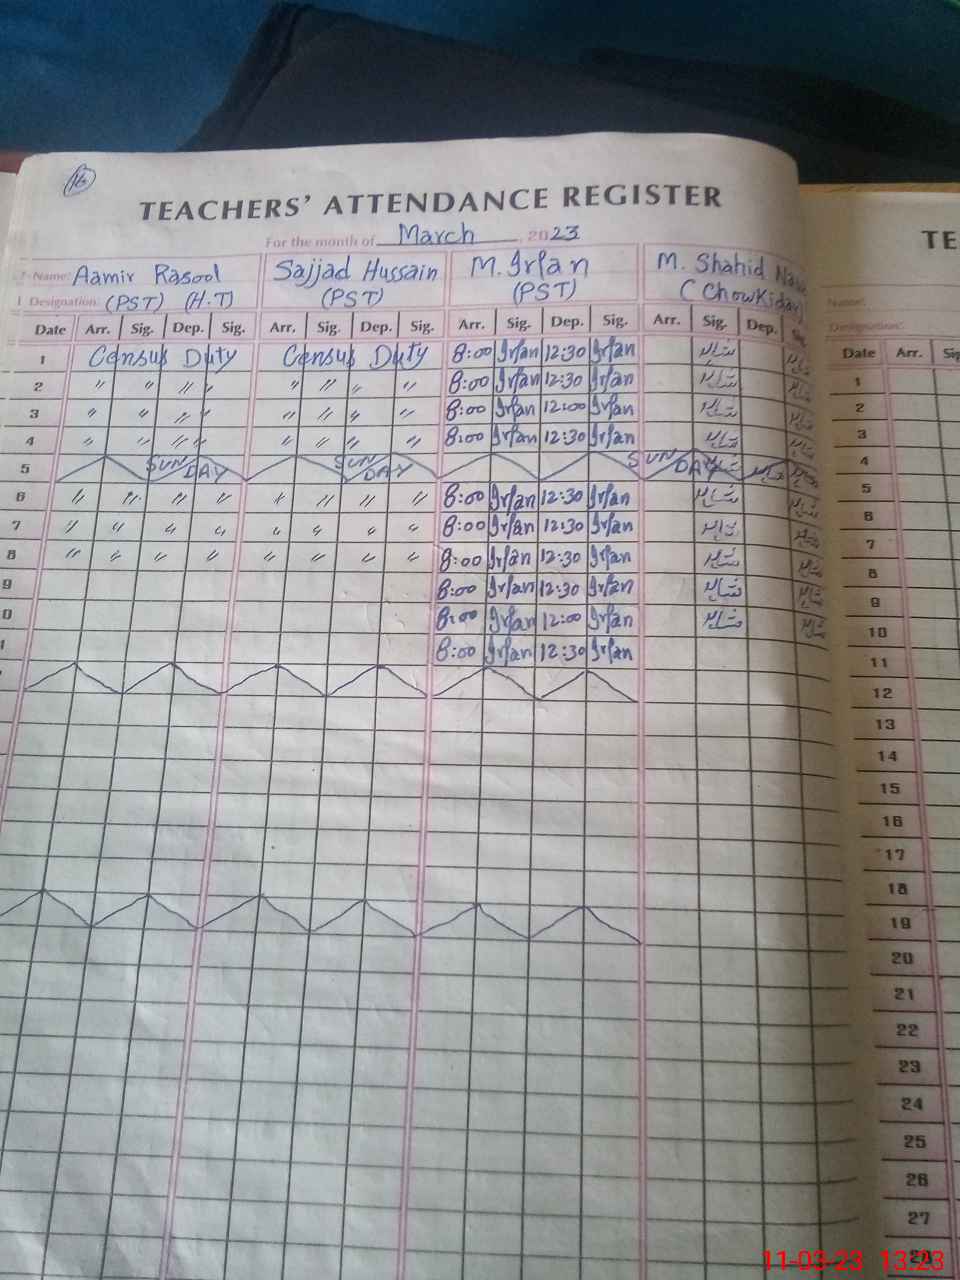 16
TEACHERS' ATTENDANCE REGISTER
For the month of March, 2023
Name: Aamir Rasool Sajjad Hussain M. Irfan M. Shahid
Designation: (PST) (H.T) (PST) (PST) (Chowkidar)
Date Arr. Sig. Dep. Sig. Arr. Sig. Dep. Sig. Arr. Sig. Dep. Sig. Arr. Sig. Dep.
1 Census Duty Census Duty 8:00 Irfan 12:30 Irfan
2 〃 〃 〃 〃 〃 〃 〃 〃 8:00 Irfan 12:30 Irfan
3 〃 〃 〃 〃 〃 〃 〃 〃 8:00 Irfan 12:00 Irfan
4 〃 〃 〃 〃 〃 〃 〃 〃 8:00 Irfan 12:30 Irfan
5 SUNDAY SUNDAY SUNDAY
6 〃 〃 〃 〃 〃 〃 〃 〃 8:00 Irfan 12:30 Irfan
7 〃 〃 〃 〃 〃 〃 〃 〃 8:00 Irfan 12:30 Irfan
8 〃 〃 〃 〃 〃 〃 〃 〃 8:00 Irfan 12:30 Irfan
9 8:00 Irfan 12:30 Irfan
0 8:00 Irfan 12:00 Irfan
1 8:00 Irfan 12:30 Irfan
TE
Name:
Designation:
Date Arr. Sig
1
2
3
4
5
6
7
8
9
10
11
12
13
14
15
16
17
18
19
20
21
22
23
24
25
26
27
28
11-03-23 13:23